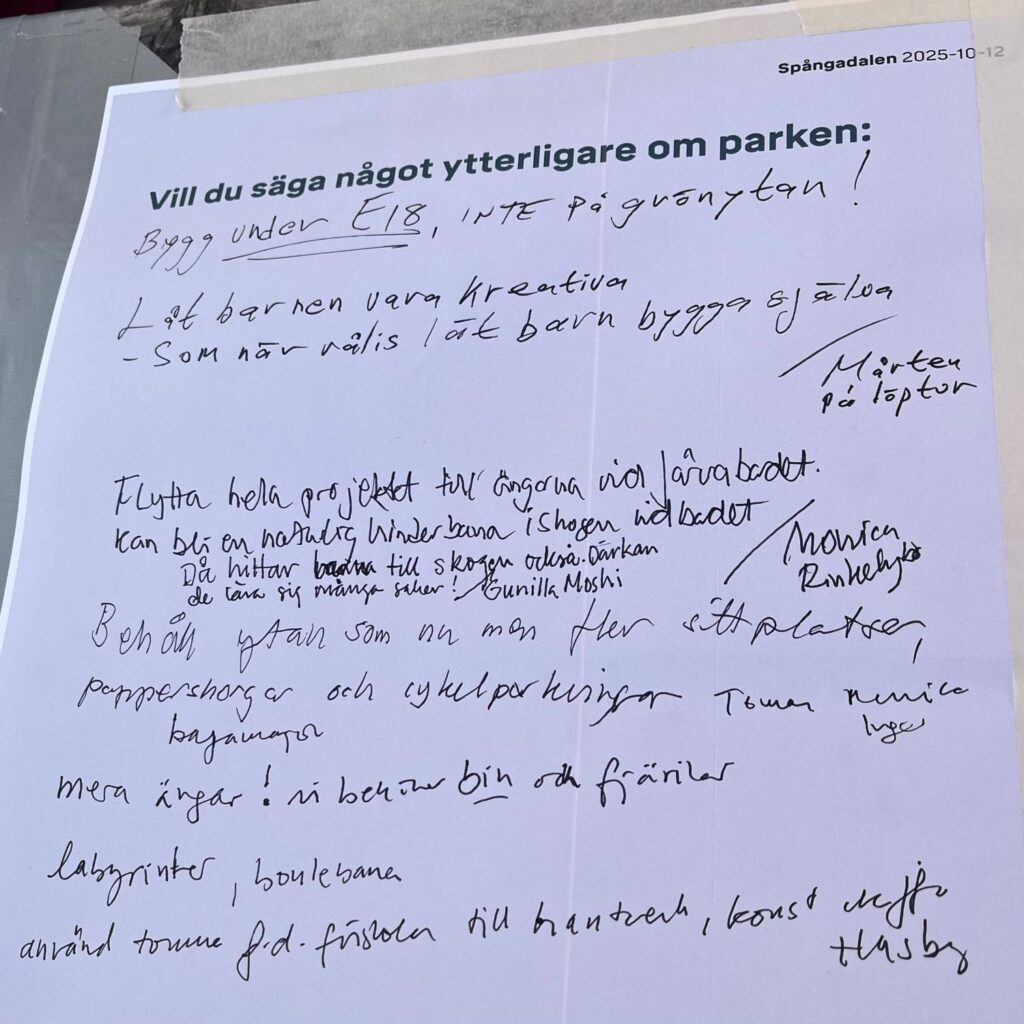 Spångadalen 2025-10-12
Vill du säga något ytterligare om parken:
Bygg under E18, INTE på grönytan!
Låt barnen vara kreativa
- Som när vålis låt barn bygga själva
Mårten
på löptur
Flytta hela projektet till ängarna vid Järvabadet.
Kan bli en naturlig hinderbana i skogen vid badet
Monica
Rinkeby
Då hittar barna till skogen också. Där kan
de lära sig många saker! / Gunilla Moshi
Behåll ytan som nu men fler sittplatser,
papperskorgar och cykelparkeringar Tomas Monica
bajamajor Inger
mera ängar! vi behöver bin och fjärilar
labyrinter, boulebana
använd tomma f.d. förskolor till hantverk, konst
Husby